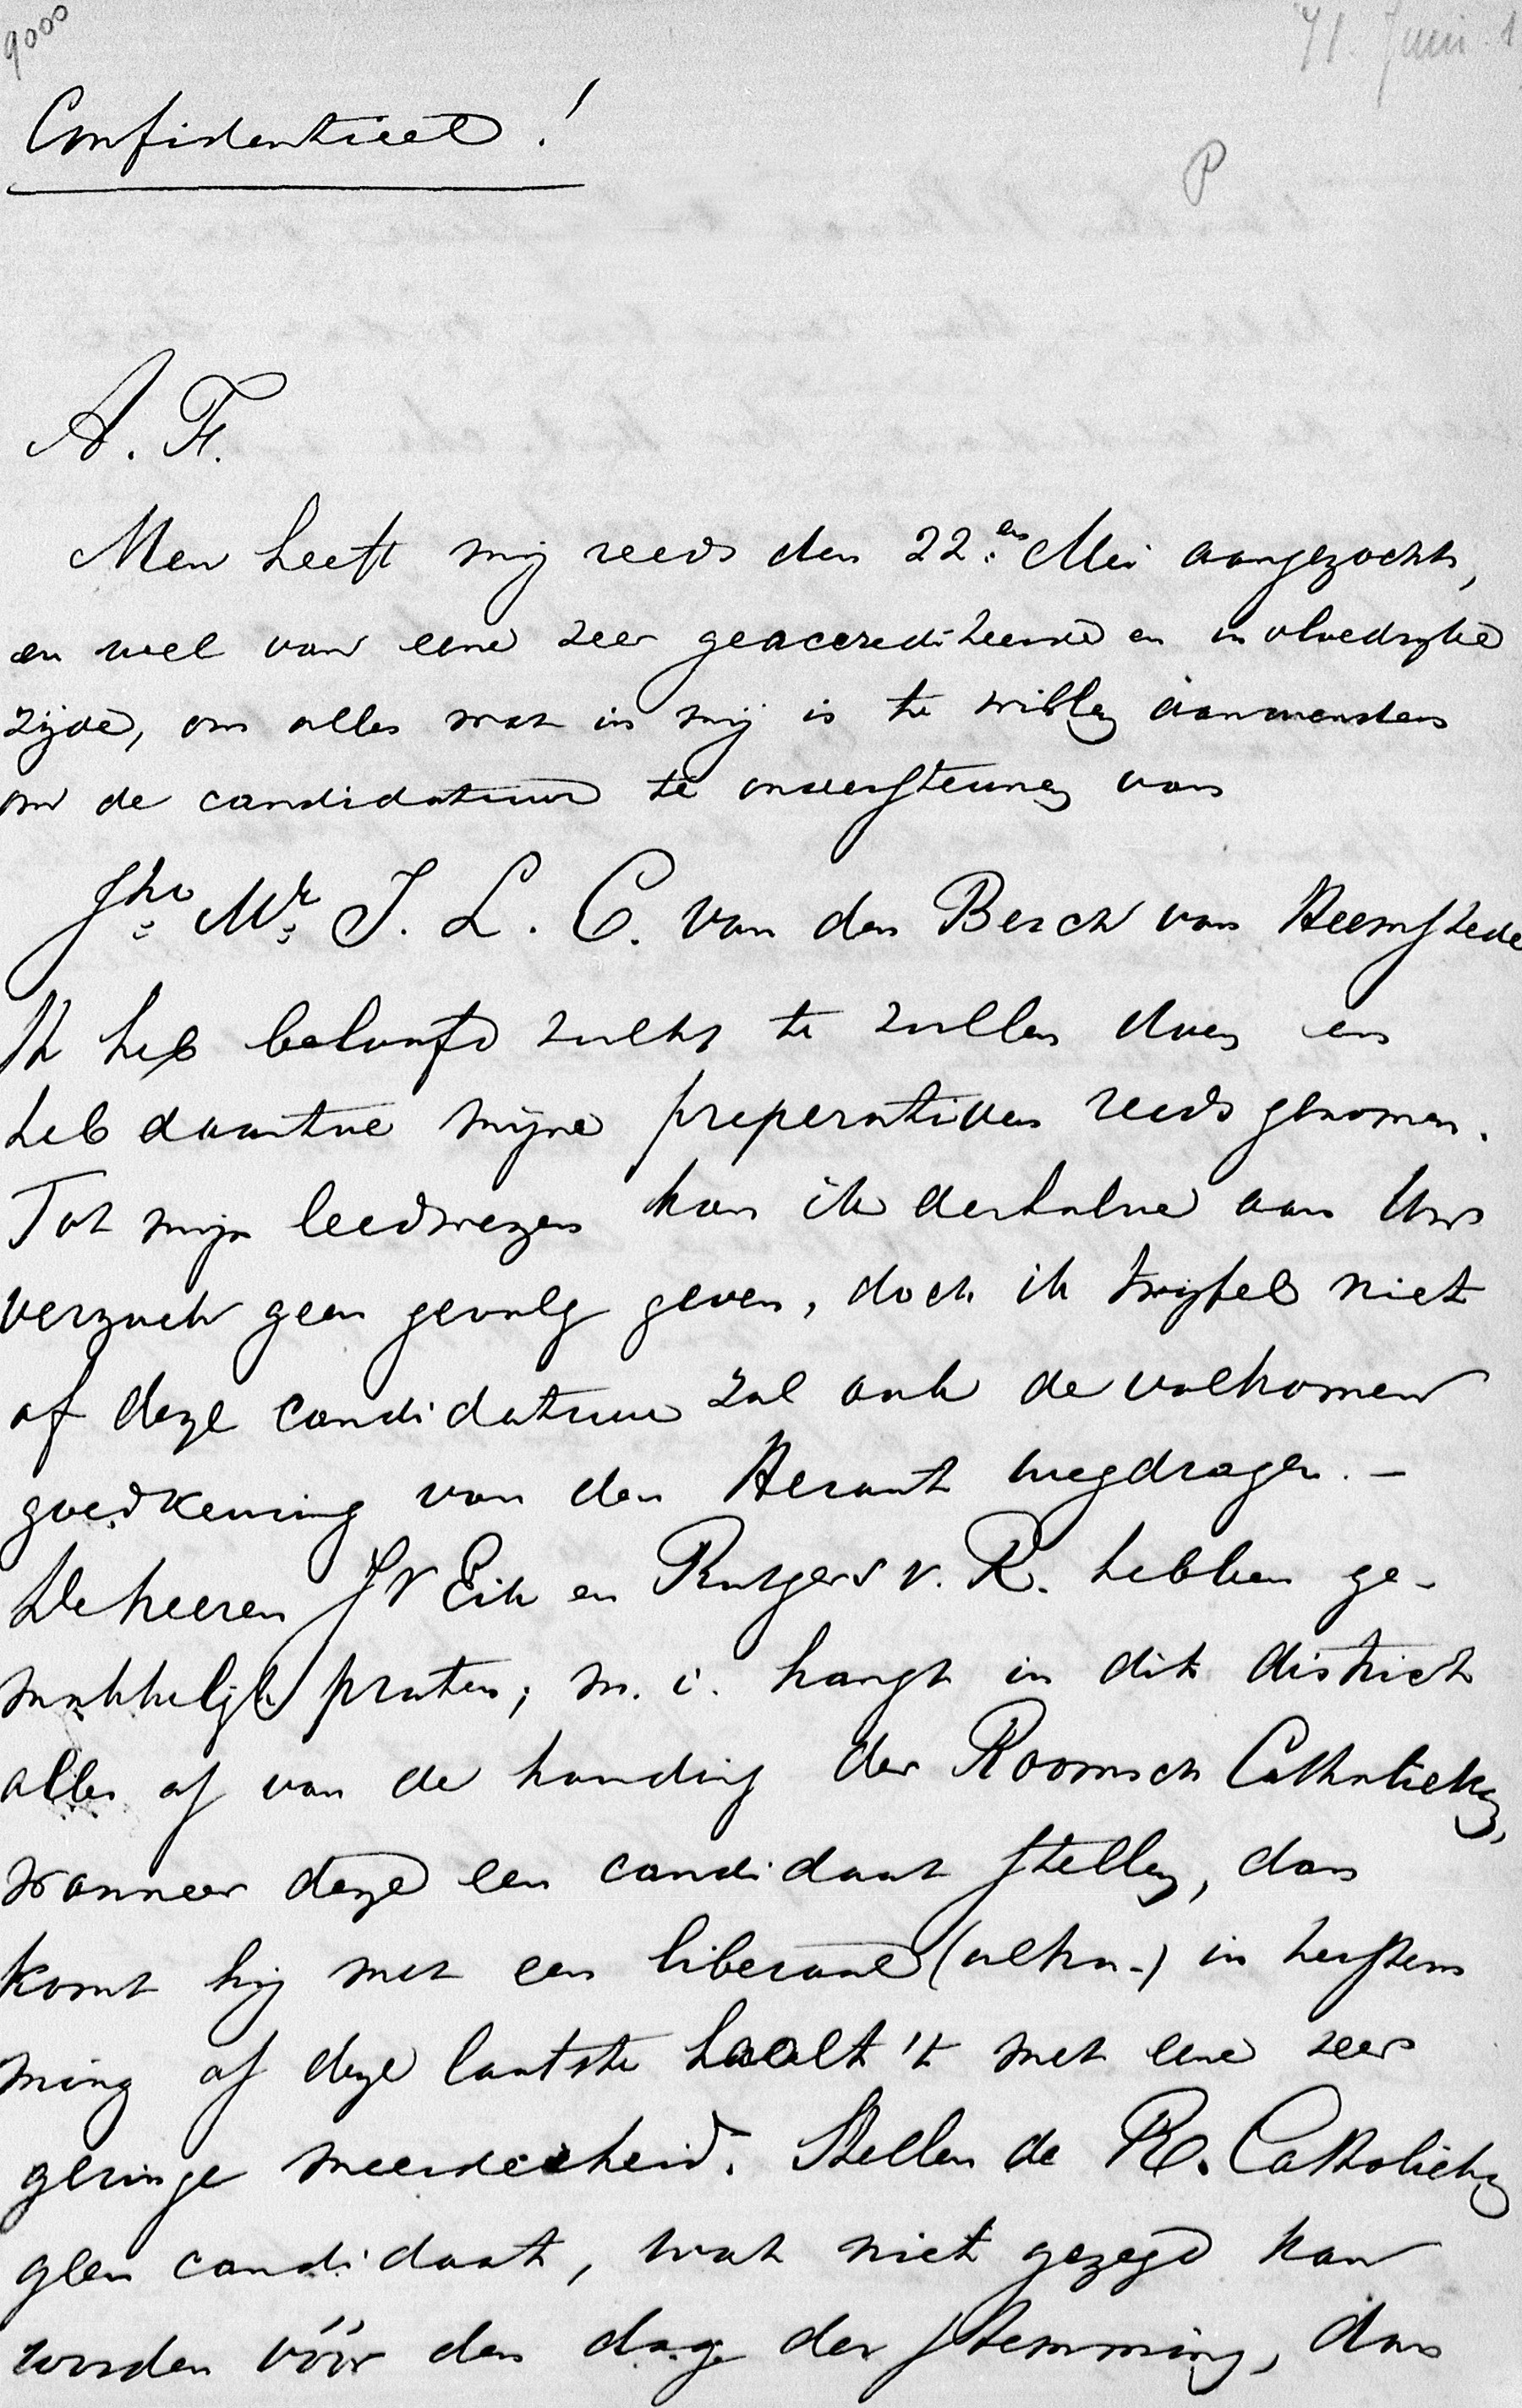 9000
71. Juni 1
Confidentieel!
P
A. F.
Men heeft mij reeds den 22.en Mei aangezocht,
en wel van eene zeer geaccrediteerde en invloedrijke
zijde, om alles wat in mij is te willen aanwenden
om de candidatuur te ondersteunen van
Jhr. Mr. J. L. C. van den Berch van Heemstede
Ik heb beloofd zulks te zullen doen en
heb daartoe mijne preperatieven reeds genomen.
Tot mijn leedwezen kan ik derhalve aan Uw
verzoek geen gevolg geven, doch ik twijfel niet
of deze candidatuur zal ook de volkomen
goedkeuring van den Heraut wegdragen. –
De heeren Jr Eik en Rutgers v. R. hebben ge-
makkelijk praten; m. i. hangt in dit district
alles af van de houding der Roomsch Catholieken,
wanneer deze een candidaat stellen, dan
komt hij met een liberaal (ultra-) in herstem
ming of deze laatste haalt 't met eene zeer
geringe meerderheid. Stellen de R. Catholieken
geen candidaat, wat niet gezegd kan
worden vóór den dag der stemming, dan